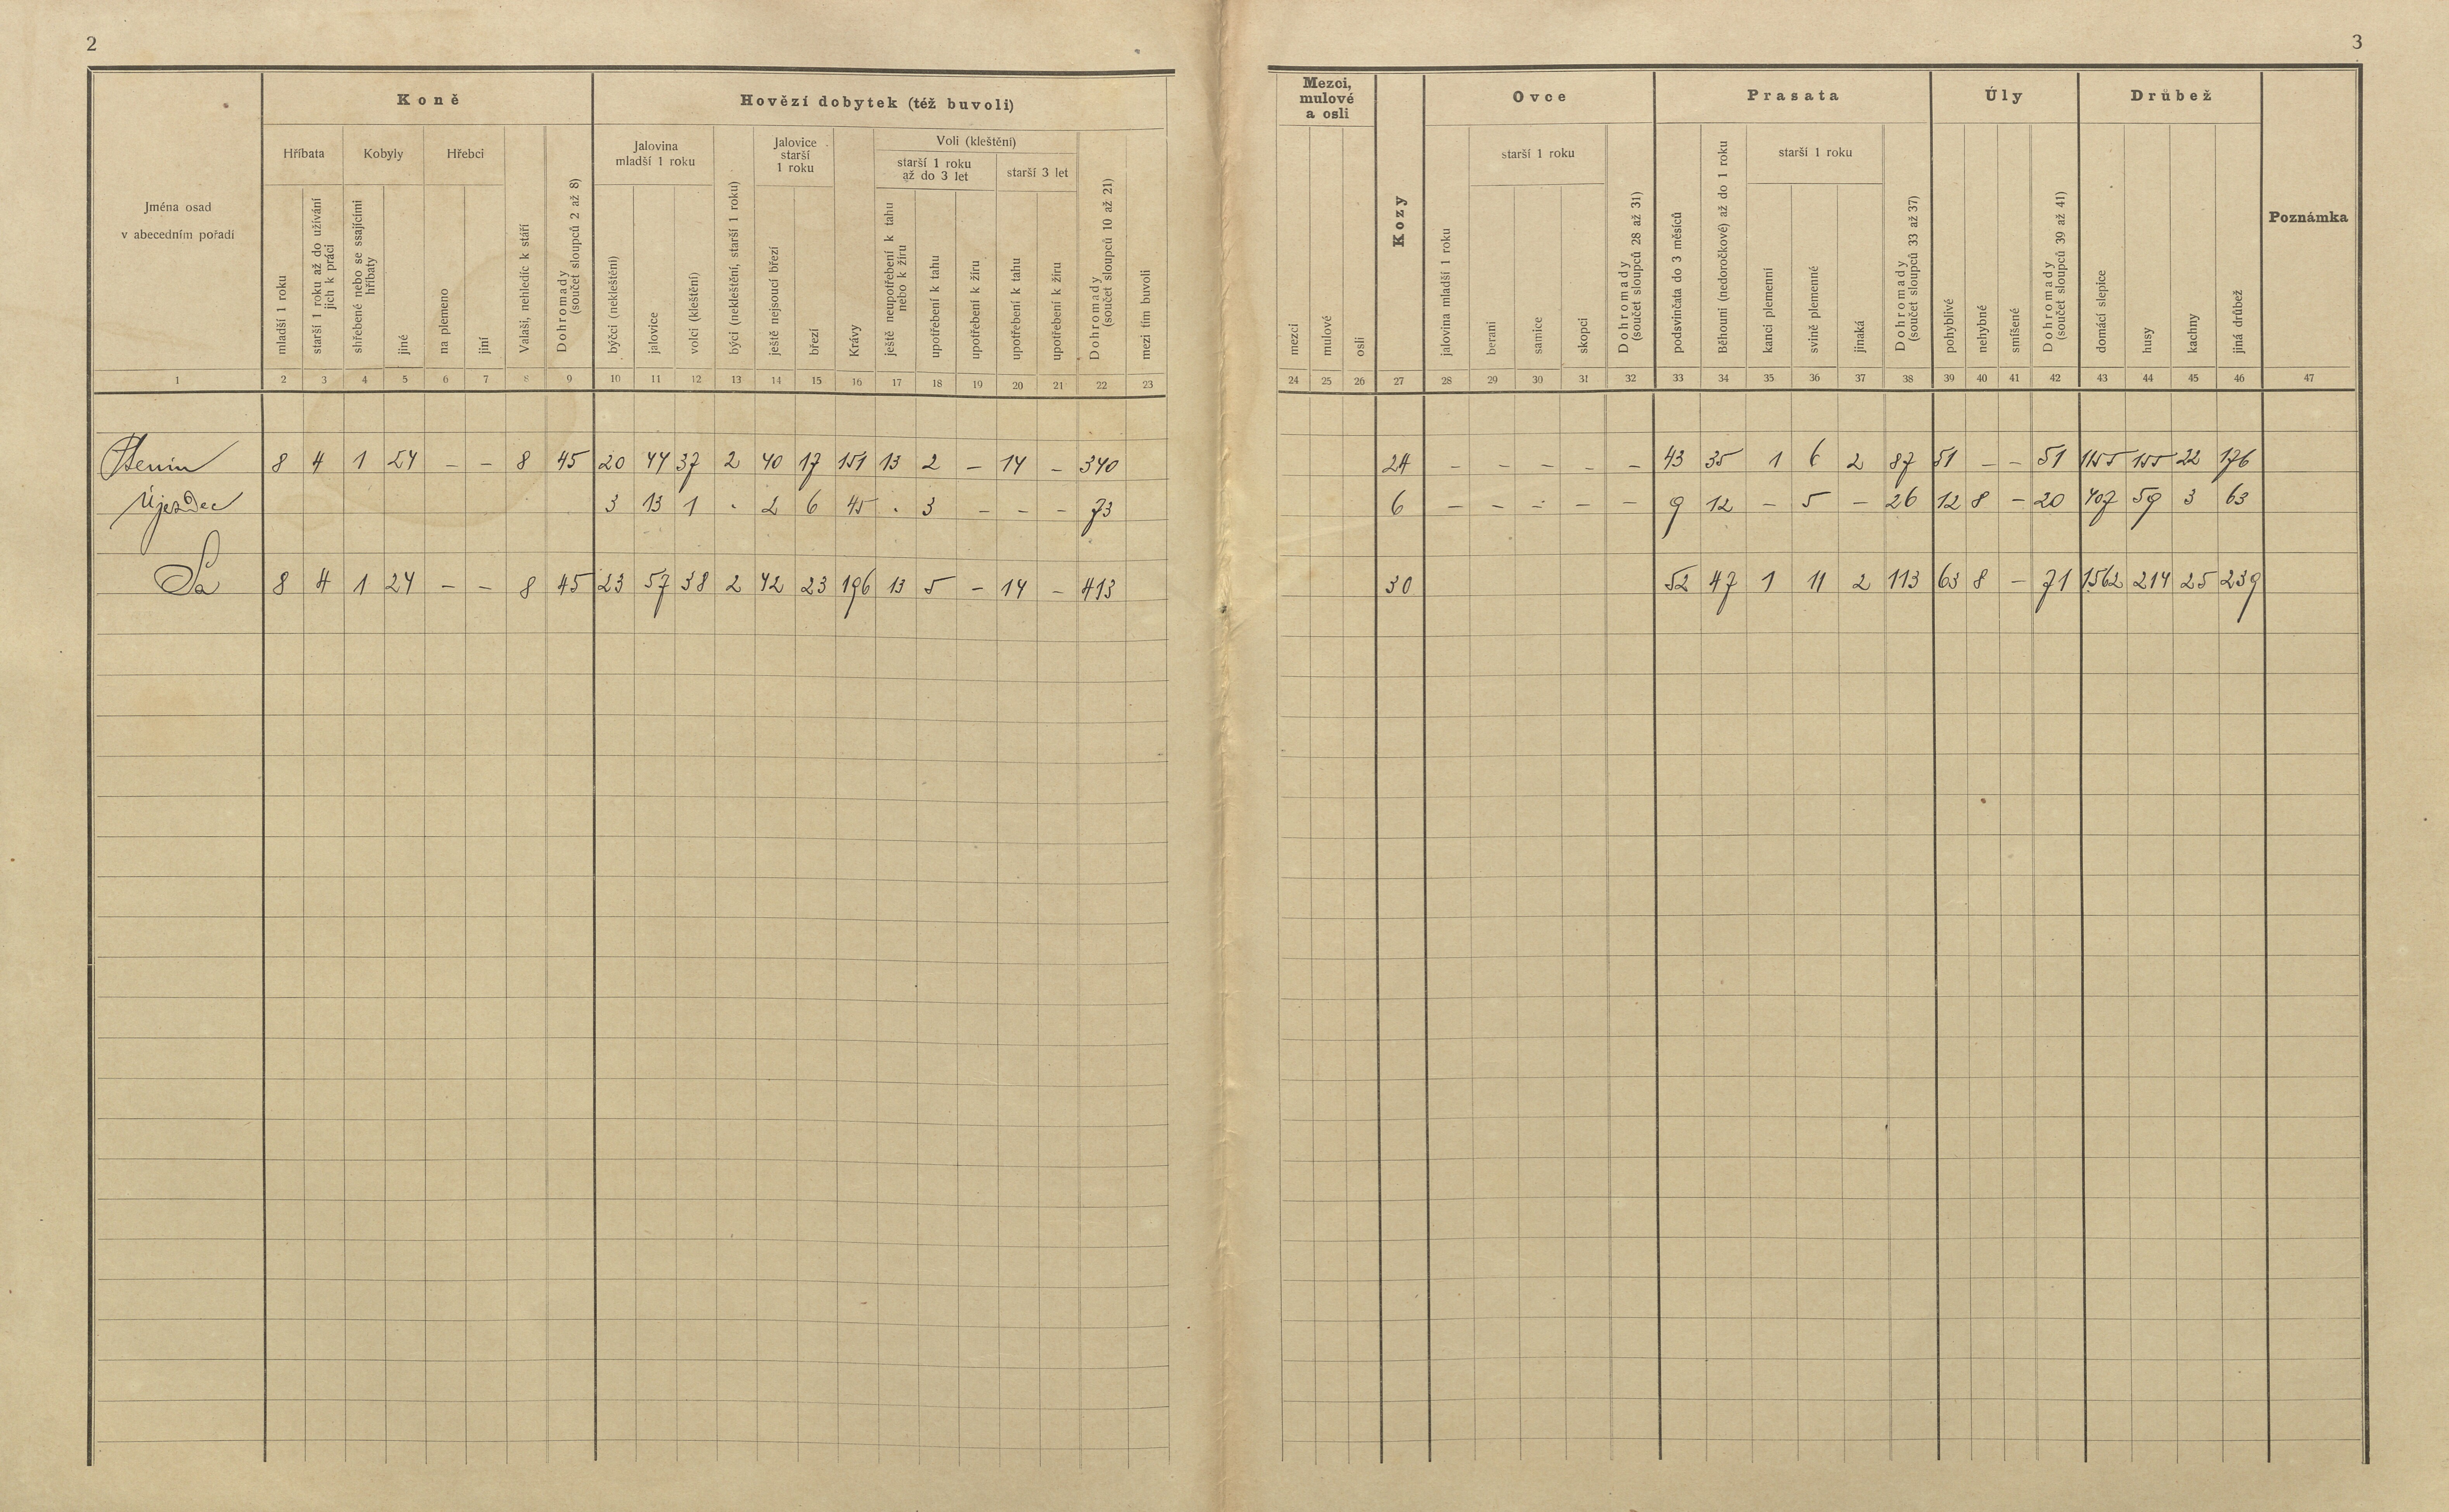 2
3
Koně
Hovězí dobytek (též buvoli)
Mezci, mulové a osli
Kozy
Ovce
Prasata
Úly
Drůbež
Poznámka
Jména osad
v abecedním pořadí
Hříbata
Kobyly
Hřebci
Valaši, nehledíc k stáří
Dohromady (součet sloupců 2 až 8)
mladší 1 roku
starší 1 roku až do užívání jich k práci
shřebené nebo se ssajícími hříbaty
jiné
na plemeno
jiní
Jalovina mladší 1 roku
býčci (nekleštění)
jalovice
volci (kleštění)
býci (nekleštění, starší 1 roku)
Jalovice starší 1 roku
ještě nejsoucí březí
březí
Krávy
Voli (kleštění)
starší 1 roku až do 3 let
starší 3 let
ještě neupotřebení k tahu nebo k žíru
upotřebení k tahu
upotřebení k žíru
upotřebení k tahu
upotřebení k žíru
Dohromady (součet sloupců 10 až 21)
mezi tím buvoli
mezci
mulové
osli
jalovina mladší 1 roku
starší 1 roku
berani
samice
skopci
Dohromady (součet sloupců 28 až 31)
podsvinčata do 3 měsíců
Běhouni (nedoročkové) až do 1 roku
starší 1 roku
kanci plemenní
svině plemenné
jinaká
Dohromady (součet sloupců 33 až 37)
pohyblivé
nehybné
smíšené
Dohromady (součet sloupců 39 až 41)
domácí slepice
husy
kachny
jiná drůbež
1 2 3 4 5 6 7 8 9 10 11 12 13 14 15 16 17 18 19 20 21 22 23 24 25 26 27 28 29 30 31 32 33 34 35 36 37 38 39 40 41 42 43 44 45 46 47
8 4 1 24 – – 8 45 20 44 37 2 40 17 151 13 2 – 14 – 340 24 – – – – – 43 35 1 6 2 87 51 – – 51 1155 155 22 176
Újezdec 3 13 1 · 2 6 45 · 3 – – – 73 6 – – – – – 9 12 – 5 – 26 12 8 – 20 407 59 3 63
Sa 8 4 1 24 – – 8 45 23 57 38 2 42 23 196 13 5 – 14 – 413 30 52 47 1 11 2 113 63 8 – 71 1562 214 25 239